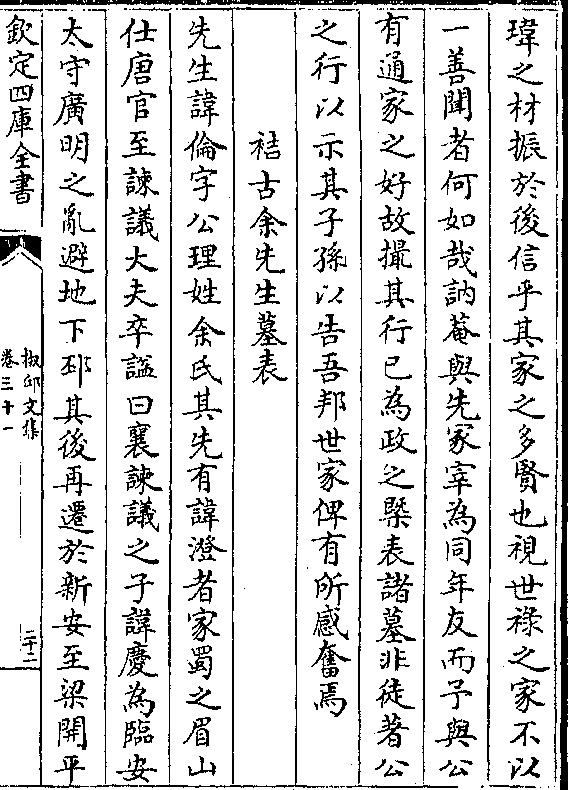 瑋之材振於後信乎其家之多賢也視世祿之家不以
一善聞者何如哉訥菴與先冢宰為同年友而予與公
有通家之好故撮其行已為政之槩表諸墓非徒著公
之行以示其子孫以告吾邦世家俾有所感奮焉
祮古余先生墓表
先生諱倫字公理姓余氏其先有諱澄者家蜀之眉山
仕唐官至諫議大夫卒謚曰襄諫議之子諱慶為臨安
太守廣明之亂避地下邳其後再遷於新安至梁開平
欽定四庫全書
椒邱文集
卷三十一
二十二